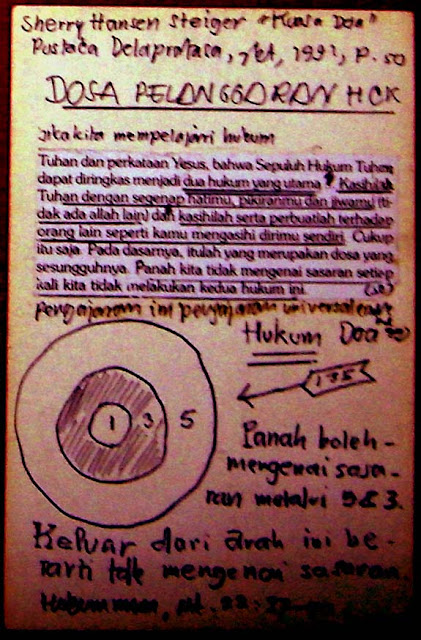 Sherry Hansen Steiger "Kuasa Doa"
Pustaca Delapratasa, 1991, P. 50
DOSA PELANGGARAN HCK
jika kita mempelajari hukum
Tuhan dan perkataan Yesus, bahwa Sepuluh Hukum Tuhan
dapat diringkas menjadi dua hukum yang utama Kasihilah
Tuhan dengan segenap hatimu, pikiranmu dan jiwamu (ti-
dak ada allah lain) dan kasihilah serta perbuatlah terhadap
orang lain seperti kamu mengasihi dirimu sendiri. Cukup
itu saja. Pada dasarnya, itulah yang merupakan dosa yang
sesungguhnya. Panah kita tidak mengenai sasaran setiap
kali kita tidak melakukan kedua hukum ini.
pengajaran ini pengajaran universal
Hukum Doa
135
1 3 5
Panah boleh -
mengenai sasa-
ran melalui 5 & 3.
Keluar dari arah ini be-
rarti tdk mengenai sasaran.